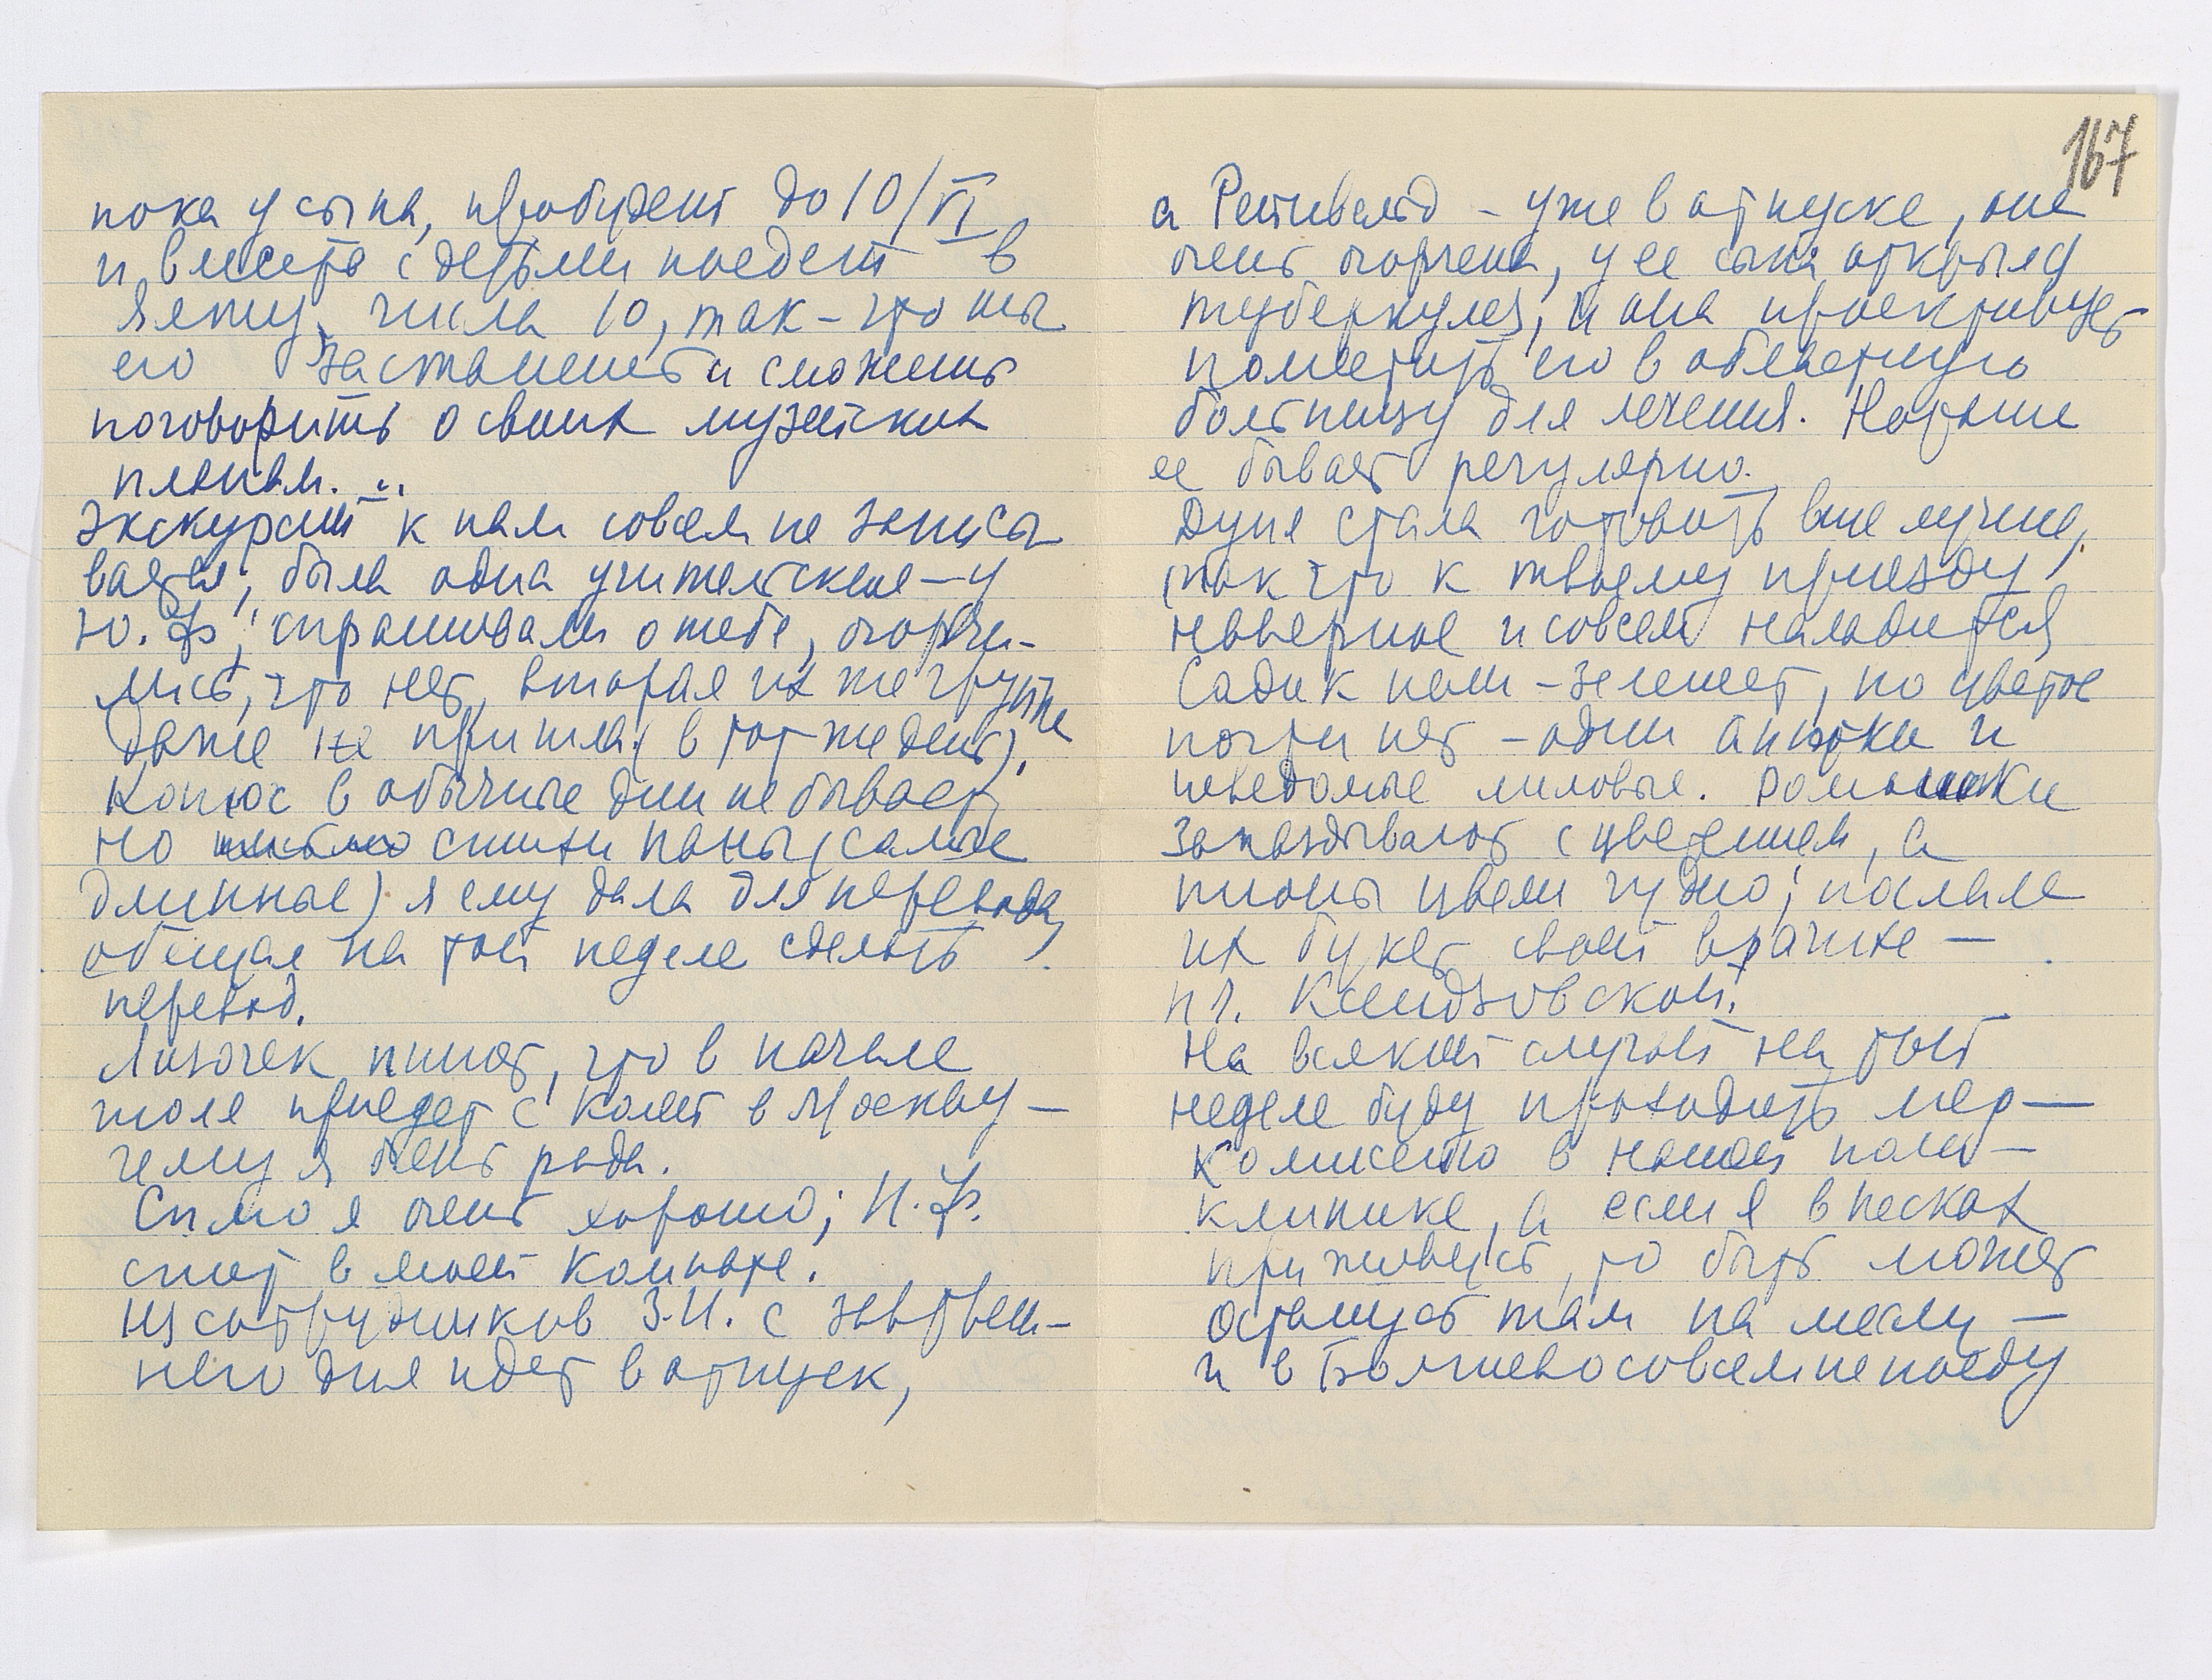 пока у сына, пробудет до 10/VI
и вместе с детьми поедет в
Ялту, числа 10, так-что ты
его застанешь и сможешь
поговорить о своих музейских
планам...
Экскурсий к нам совсем не записы
вается, была одна учительская – у
Ю. Ф., спрашивали о тебе, огорчи-
лись, что нет, вторая их же группа
даже не пришла (в тот же день).
Конюс в обычные дни не бывает,
но стихи папы (самые
длинные) я ему дала для перевода,
обещал на той неделе сделать
перевод.
Лизочек пишет, что в начале
июля приедет с Колей в Москву –
чему я очень рада.
Сплю я очень хорошо; Н. Ф.
спит в моей комнате.
Из сотрудников З.И. с завтраш-
него дня идет в отпуск,
167
а – уже в отпуске, она
очень огорчена, у ее сына открылся
туберкулез, и она проектирует
поместить его в областную
больницу для лечения. Наташе
ее бывает регулярно.
Дуня стала готовить еще лучше,
так что к твоему приезду,
наверное и совсем наладится
Садик наш – зеленеет, но цветов
почти нет – одни анютки и
неведомые лиловые. Ромашки
запаздывают с цветением, а
пионы цвели чудно; послала
их букет своей врачихе –
гл. Ксендзовской.
На всякий случай на той
неделе буду проходить мед–
комиссию в нашей поли–
клинике, а если я в Песках
приживусь, то быть может
останусь там на месяц –
и в Болшево совсем не поеду